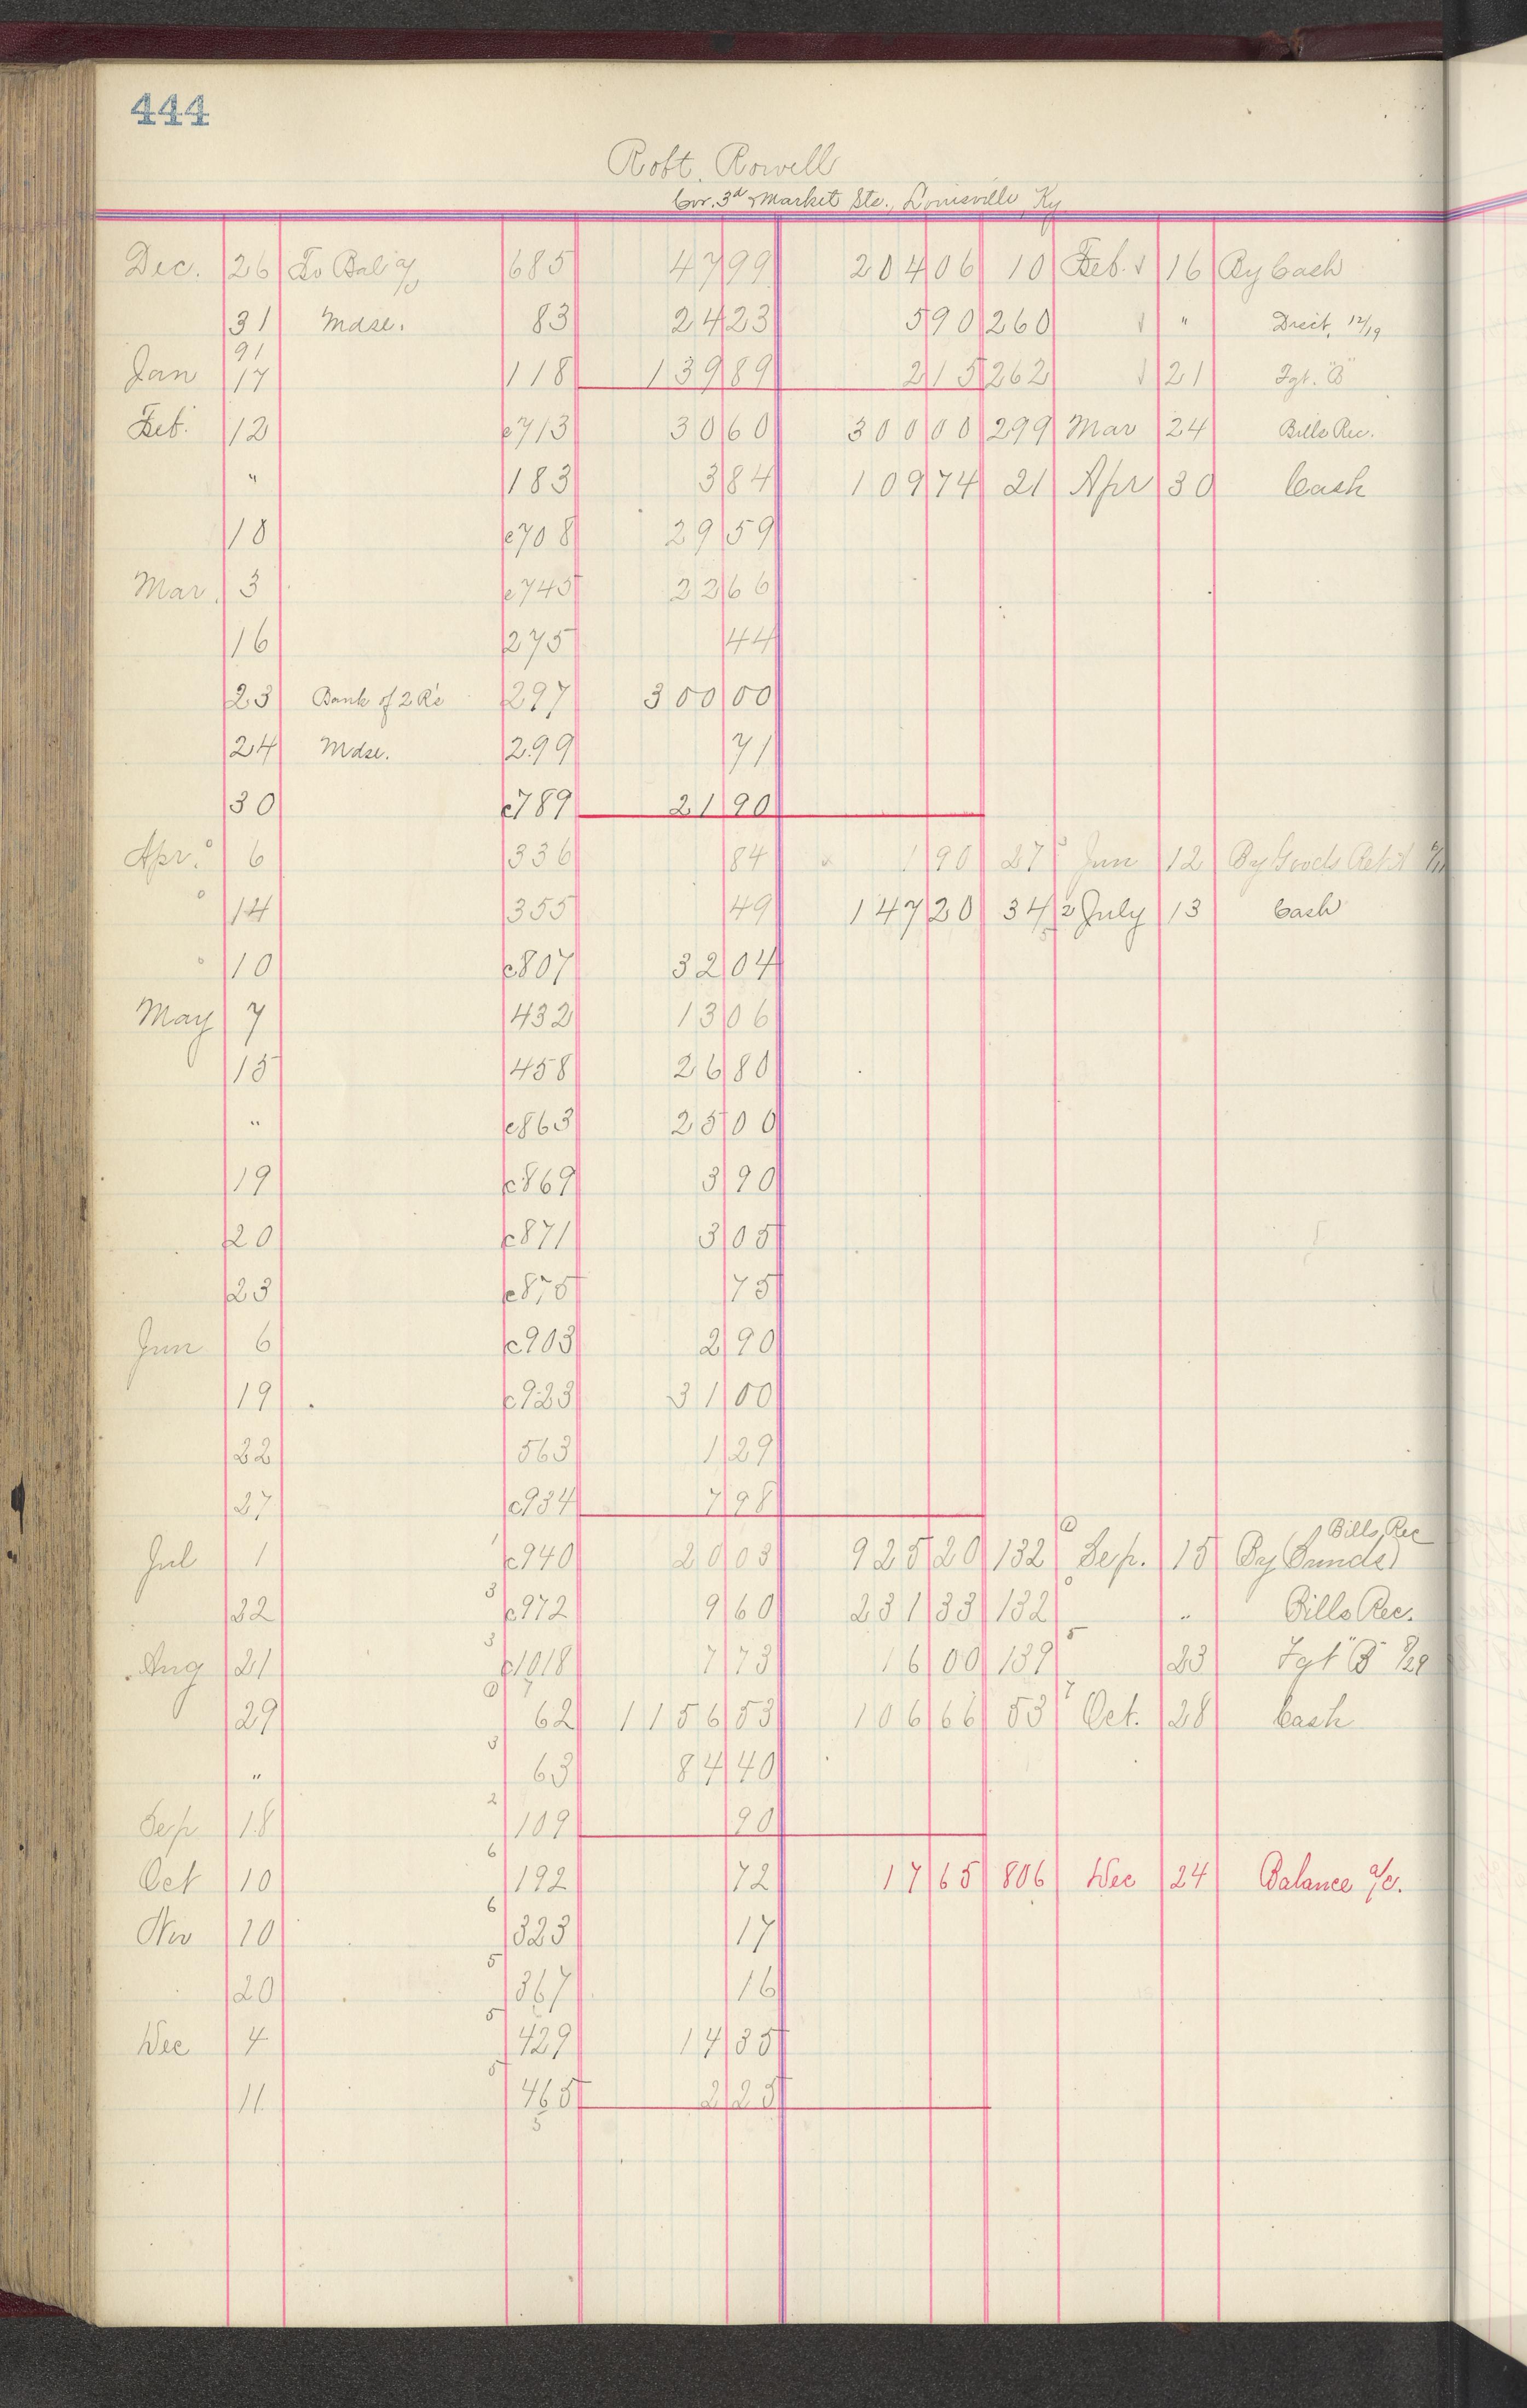 444
Robt. Rowell
Cor. 3d & Market Sts., Louisville, Ky
Dec. 26 To Bal a/c 685 47 99 204 06 10 Feb. 16 By Cash
31 Mdse. 83 24 23 5 90 260 " 12/19
91
Jan 17 118 139 89 2 15 262 21 Fgt. "B"
Feb. 12 c713 30 60 300 00 299 Mar 24 Bills Rec.
" 183 3 84 109 74 21 Apr 30 Cash
18 c708 29 59
Mar. 3 c745 22 66
16 275 44
23 Bank of 297 300 00
24 Mdse. 299 71
30 c789 21 90
Apr. 6 336 84 1 90 27 3 Jun 12 By Goods Ret'd
14 355 49 147 20 34 2 July 13 Cash
10 c807 32 04
May 7 432 13 06
15 458 26 80
" c863 25 00
19 c869 3 90
20 c871 3 05
23 c875 75
Jun 6 c903 2 90
19 c923 31 00
22 563 1 29
27 c934 7 98
Bills Rec
Jul 1 1 c940 20 03 925 20 132 Sep. 15 By Sunds
22 3 c972 9 60 231 33 132 " Bills Rec.
Aug 21 3 c1018 7 73 16 00 139 5 23 Fgt "B" 8/29
29 62 1156 53 106 66 53 7 Oct. 28 Cash
" 3 63 84 40
Sep 18 2 109 90
Oct 10 6 192 72 17 65 806 Dec 24 Balance a/c.
Nov 10 6 323 17
20 5 367 16
Dec 4 5 429 14 35
11 5 465 2 25
5